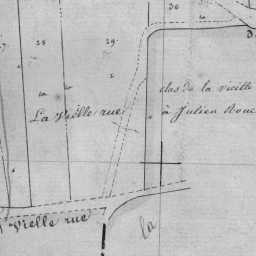 30
28
29
clos de la vieille
La Vielle rue
à Julien Rouc
Vielle rue
la